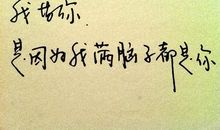 我故你.
是因为我满脑子都是你